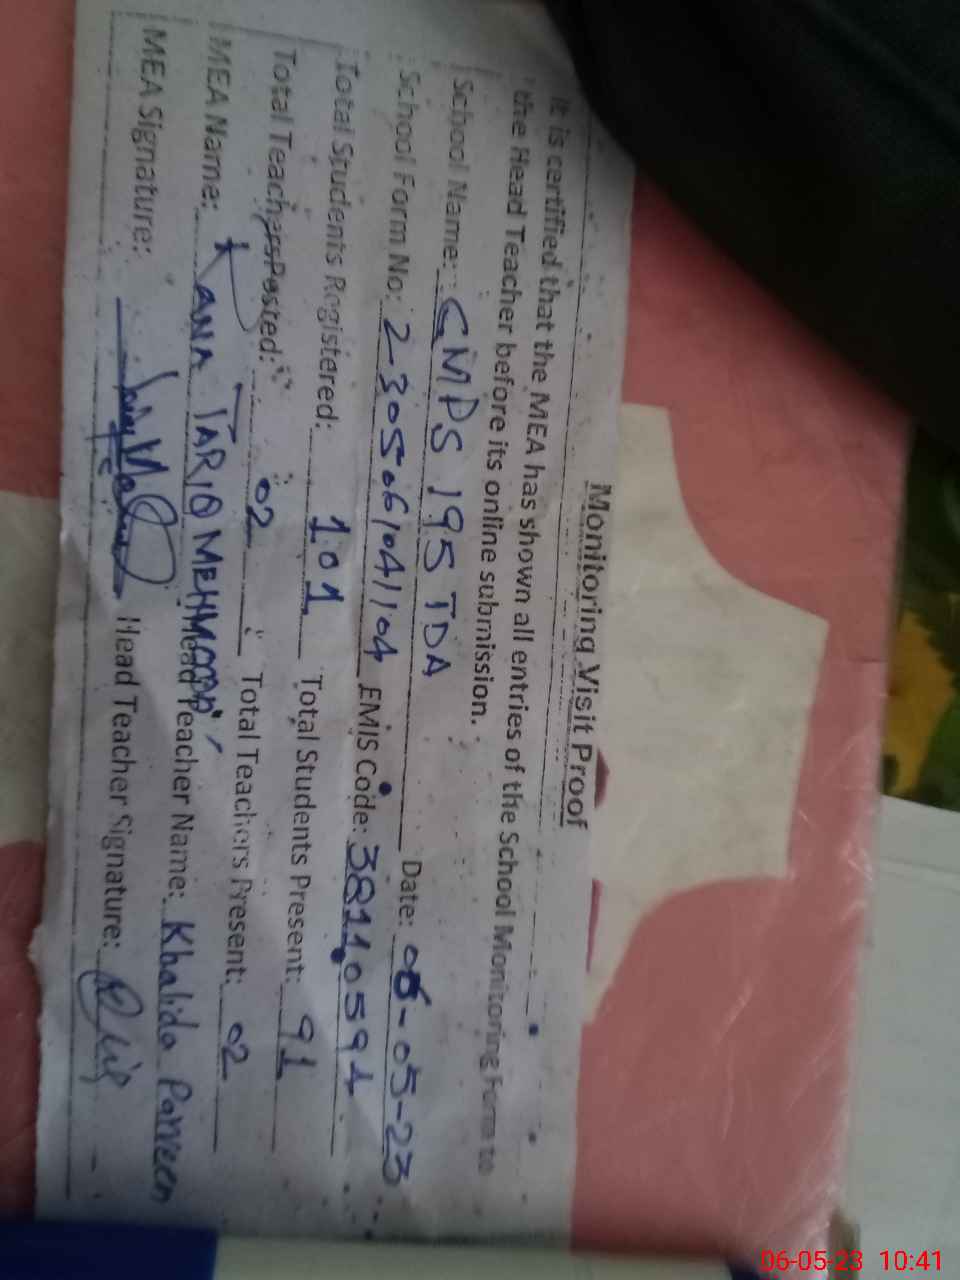 Monitoring Visit Proof
It is certified that the MEA has shown all entries of the School Monitoring Form to
the Head Teacher before its online submission.
School Name: GMPS 195 TDA Date: 06-05-23
School Form No: 2305061041104 EMIS Code: 38110591
Total Students Registered: 101 Total Students Present: 91
Total Teachers Posted: 02 Total Teachers Present: 02
MEA Name: RANA TARIQ MEHMOOD Head Teacher Name: Khalida Parveen
MEA Signature: Head Teacher Signature:
06-05-23 10:41